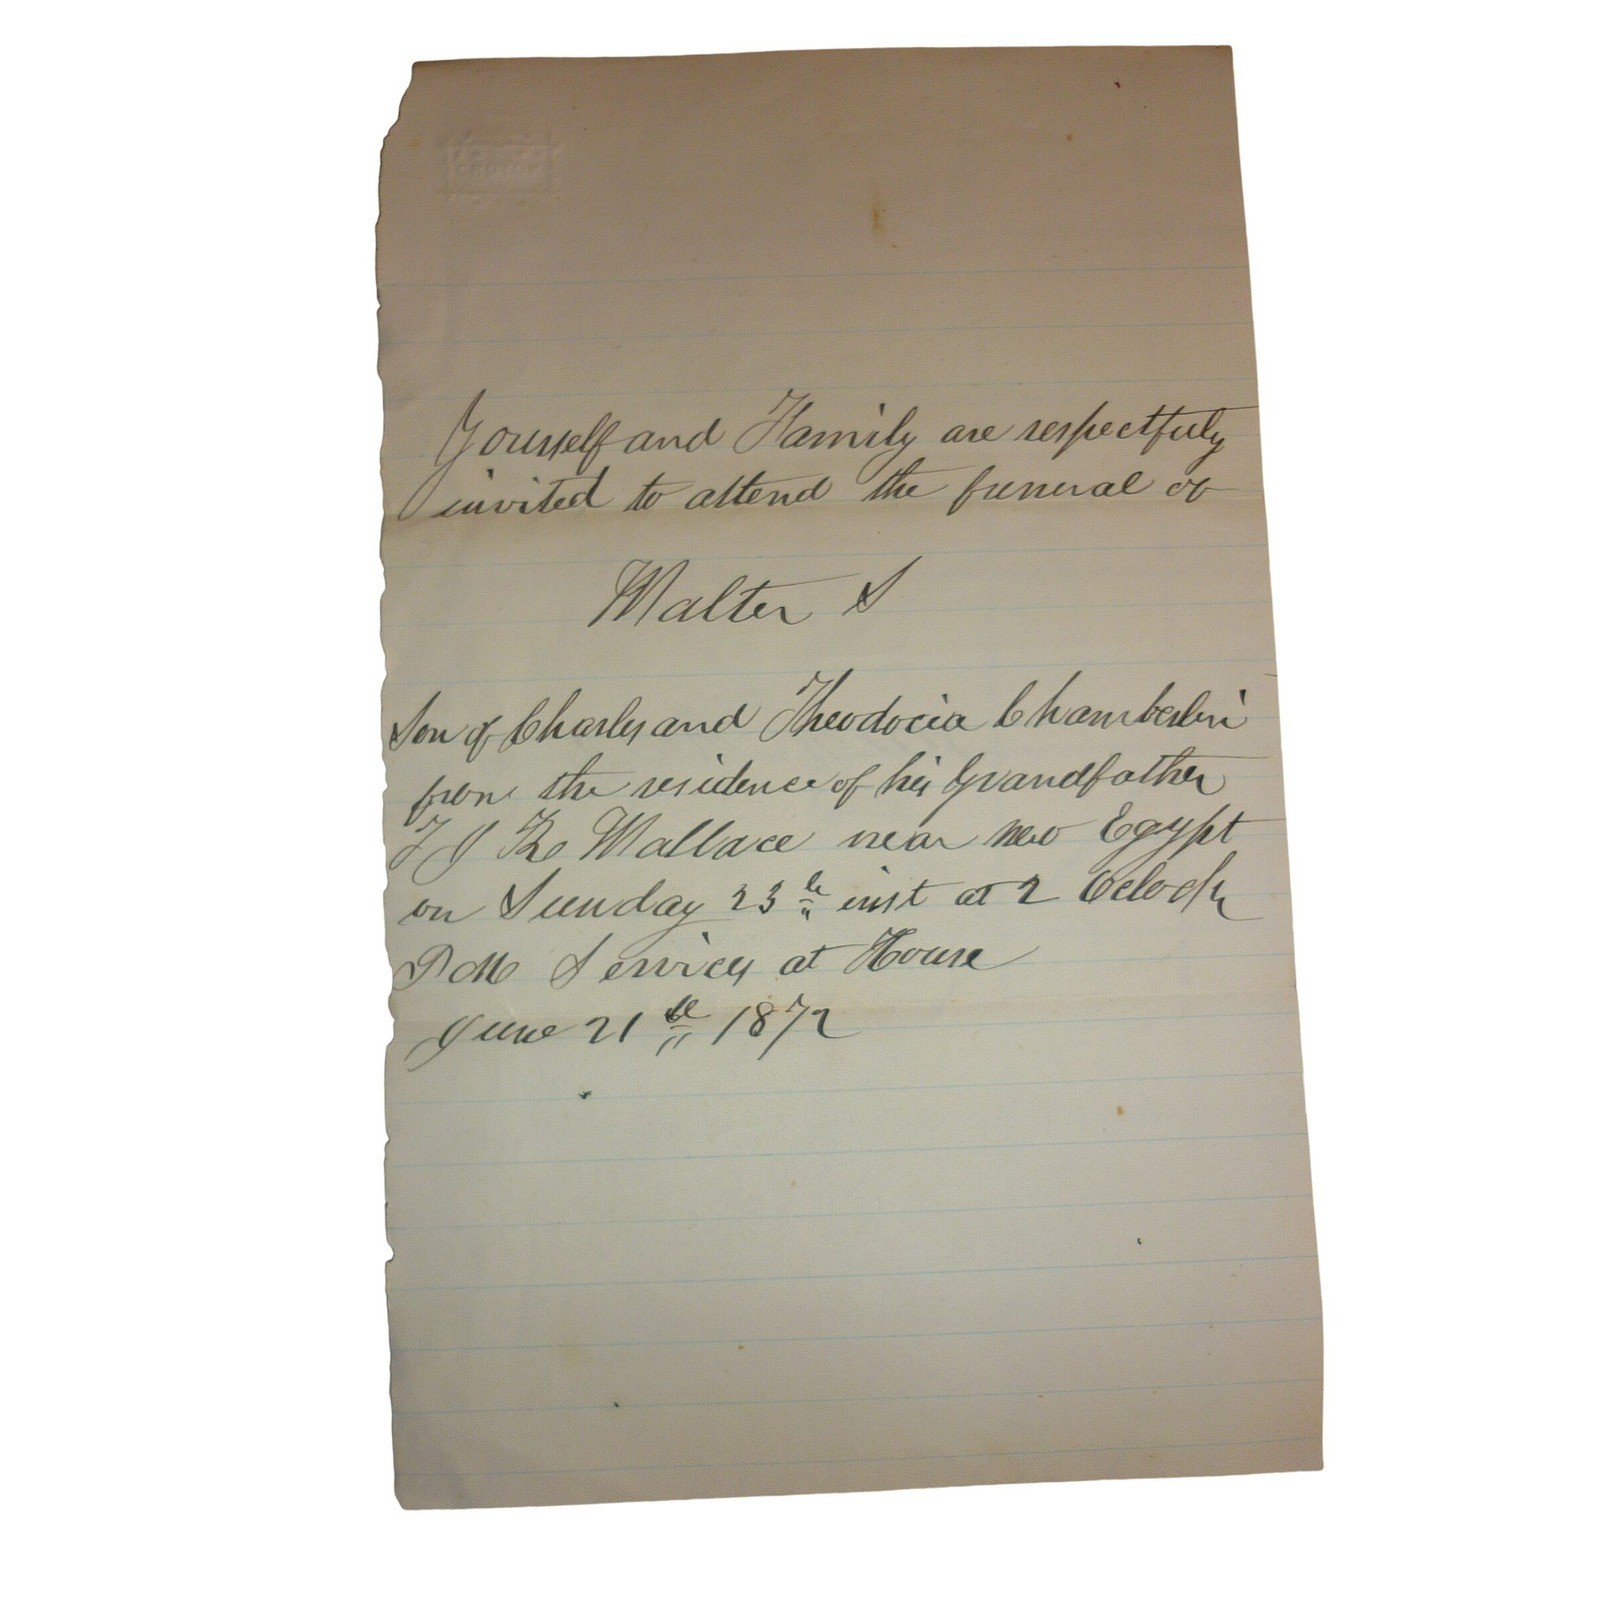 Yourself and Family are respectfuly
invited to attend the funeral of
Walter S
Son of Charles and Theodocia Chamberlin
from the residence of his Grandfather
T J K Wallace near new Egypt
on Sunday 23th inst at 2 Oclock
P M Services at House
June 21th 1872